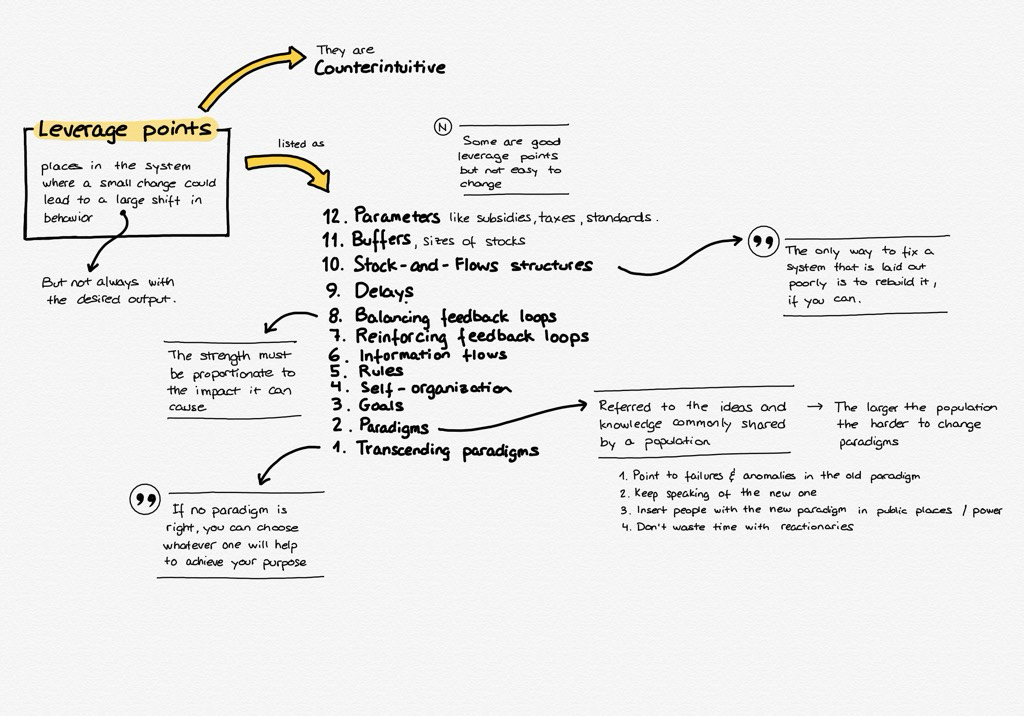 They are
Counterintuitive
Leverage points
places in the system
where a small change could
lead to a large shift in
behavior
But not always with
the desired output.
listed as
N
Some are good
leverage points
but not easy to
change
12. Parameters like subsidies, taxes, standards.
11. Buffers, sizes of stocks
10. Stock-and-Flows structures
9. Delays
8. Balancing feedback loops
7. Reinforcing feedback loops
6. Information flows
5. Rules
4. Self-organization
3. Goals
2. Paradigms
1. Transcending paradigms
”
The only way to fix a
system that is laid out
poorly is to rebuild it,
if you can.
The strength must
be proportionate to
the impact it can
cause
Referred to the ideas and
knowledge commonly shared
by a population
→ The larger the population
the harder to change
paradigms
1. Point to failures & anomalies in the old paradigm
2. Keep speaking of the new one
3. Insert people with the new paradigm in public places / power
4. Don't waste time with reactionaries
”
If no paradigm is
right, you can choose
whatever one will help
to achieve your purpose